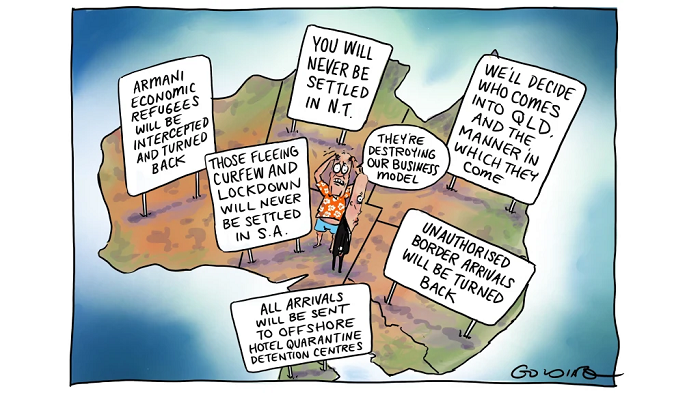 ARMANI
ECONOMIC
REFUGEES
WILL BE
INTERCEPTED
AND TURNED
BACK
YOU WILL
NEVER BE
SETTLED
IN N.T.
WE'LL DECIDE
WHO COMES
INTO QLD.
AND THE
MANNER IN
WHICH THEY
COME
THOSE FLEEING
CURFEW AND
LOCKDOWN
WILL NEVER
BE SETTLED
IN S.A.
THEY'RE
DESTROYING
OUR BUSINESS
MODEL
UNAUTHORISED
BORDER ARRIVALS
WILL BE TURNED
BACK
ALL ARRIVALS
WILL BE SENT
TO OFFSHORE
HOTEL QUARANTINE
DETENTION CENTRES
GOLDING